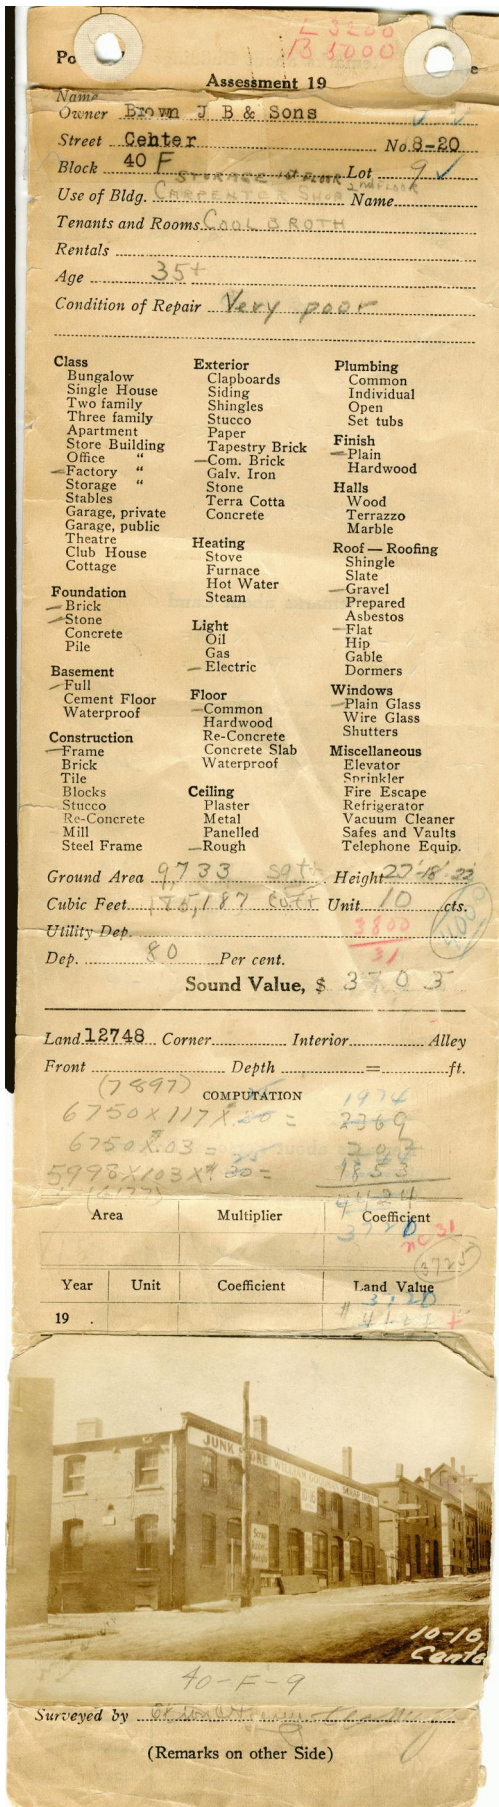 L 3200
B 5000
Assessment 19
Name
Owner Brown J B & Sons
Street Center No. 8-20
Block 40 F Lot 9
STORAGE 1st FLOOR
Use of Bldg. CARPENTER SHOP 2nd FLOOR Name
Tenants and Rooms COOLBROTH
Rentals
Age 35+
Condition of Repair Very poor
Class
Bungalow
Single House
Two family
Three family
Apartment
Store Building
Office "
Factory "
Storage "
Stables
Garage, private
Garage, public
Theatre
Club House
Cottage
Foundation
Brick
Stone
Concrete
Pile
Basement
Full
Cement Floor
Waterproof
Construction
Frame
Brick
Tile
Blocks
Stucco
Re-Concrete
Mill
Steel Frame
Exterior
Clapboards
Siding
Shingles
Stucco
Paper
Tapestry Brick
Com. Brick
Galv. Iron
Stone
Terra Cotta
Concrete
Heating
Stove
Furnace
Hot Water
Steam
Light
Oil
Gas
Electric
Floor
Common
Hardwood
Re-Concrete
Concrete Slab
Waterproof
Ceiling
Plaster
Metal
Panelled
Rough
Plumbing
Common
Individual
Open
Set tubs
Finish
Plain
Hardwood
Halls
Wood
Terrazzo
Marble
Roof — Roofing
Shingle
Slate
Gravel
Prepared
Asbestos
Flat
Hip
Gable
Dormers
Windows
Plain Glass
Wire Glass
Shutters
Miscellaneous
Elevator
Sprinkler
Fire Escape
Refrigerator
Vacuum Cleaner
Safes and Vaults
Telephone Equip.
Ground Area 9,733 sq ft. Height 22'-18'-22
Cubic Feet 185,187 cu ft Unit 10 cts.
Utility Dep. 3800
31
Dep. 80 Per cent.
Sound Value, $ 3703
Land 12748 Corner Interior Alley
Front Depth = ft.
(7897)
COMPUTATION
1974
6750 X 117 X = 2369
6750 X .03 =
5998 X 103 X = 1853
4424
Area Multiplier Coefficient
3720
nc 31
3725
Year Unit Coefficient Land Value
3720
19 .
JUNK STORE WILLIAM SCRAP IRON
10-16
10-16
Cente
40-F-9
Surveyed by
(Remarks on other Side)